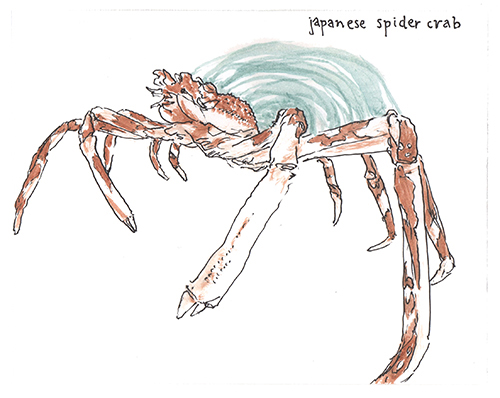 japanese spider crab